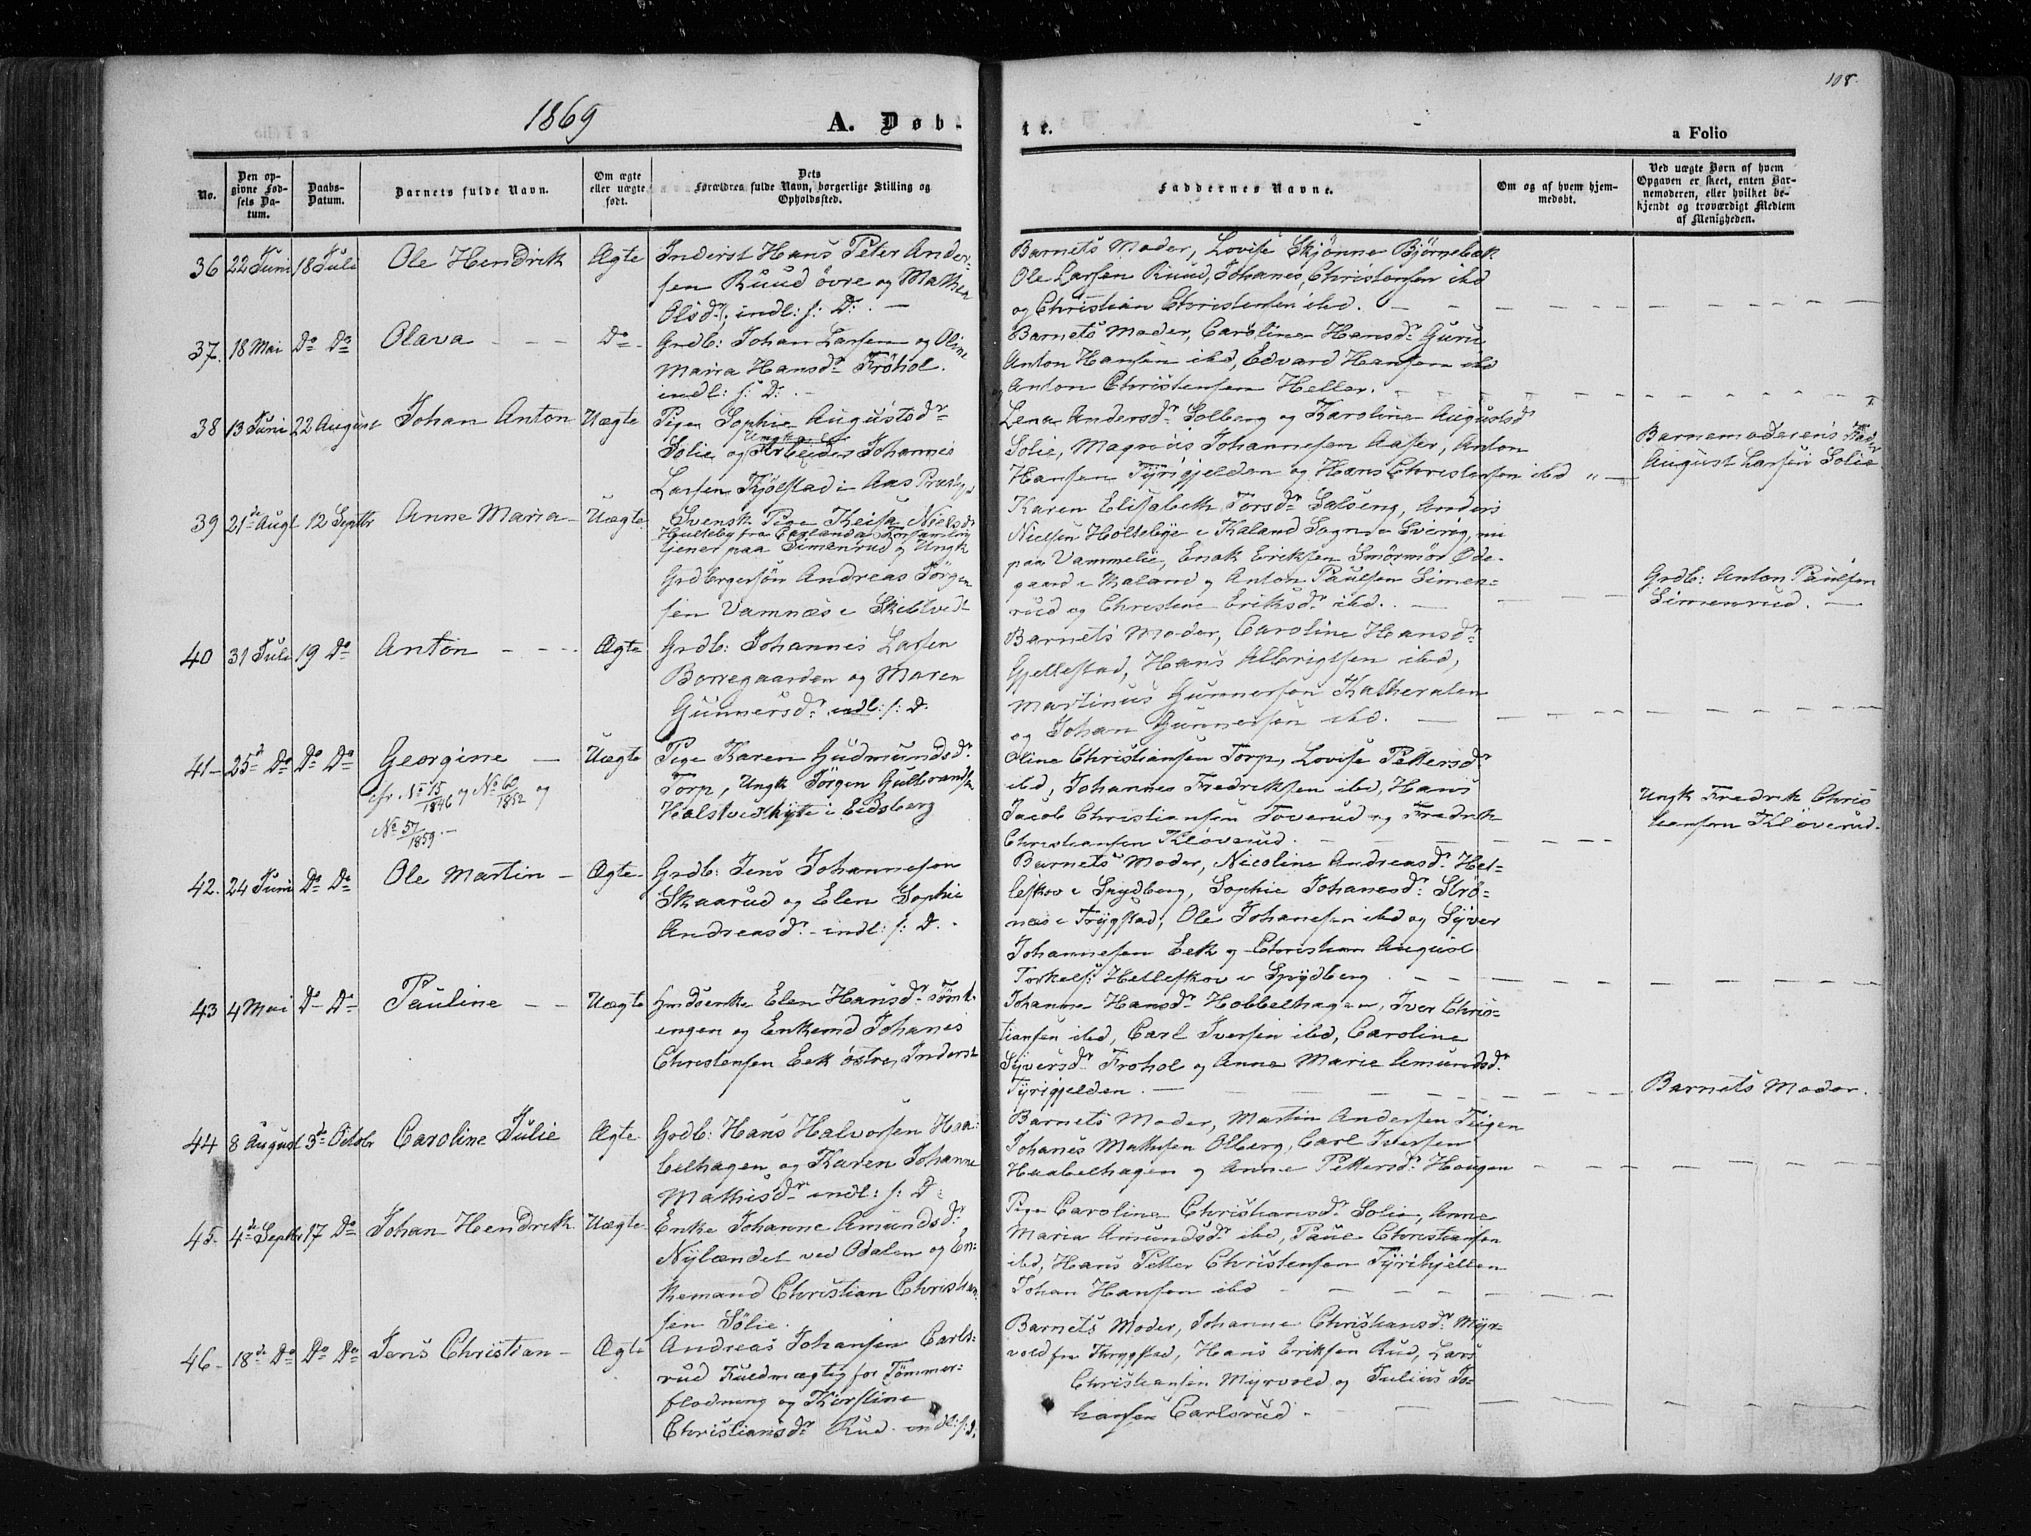 108.
1869
A. Døb-
te.
a Folio
No.
Den op-
givne Fød-
sels Da-
tum.
Daabs-
Datum.
Barnets fulde Navn.
Om ægte
eller uægte
født.
Dets
Forældres fulde Navn, borgerlige Stilling og
Opholdssted.
Faddernes Navne.
Om og af hvem hjem-
medøbt.
Ved uægte Børn af hvem
Opgaven er skeet, enten Bar-
nemoderen, eller hvilket be-
kjendt og troværdigt Medlem
af Menigheden.
36 22 Juni 18 Juli Ole Hendrik Ægte
Inderst Hans Peter Ander-
sen Ruud øvre og Mathea
Olsdr, indl: s: D: —
Barnets Moder, Lovise Skjønne Bjørnebæk
Ole Larsen Ruud, Johanes Christensen ibd
og Christian Christensen ibd.
37. 18 Mai Do Do Olava Do
Grdb: Johan Larsen og Oline
Maria Hansdr Frøhol.
indl: s: D:
Barnets Moder, Caroline Hansdr Guru
Anton Hansen ibd, Edvard Hansen ibd
Anton Christensen Heller.
38 13 Juni 22 August Johan Anton Uægte
Pige Sophie Augustsdr
Solie og Arbeider Johannes
Larsen Kjølstad i Aas Præstgj
Lena Andersdr Solberg og Karoline Augustsd
Solie, Magnus Johannesen Aaser, Anton
Hansen Tyrigjelden og Hans Christensen ibd
Barnemoderens Fader
August Larsen Solie
39 21de Augt 12 Septbr Anne Maria Uægte
Svensk Pige Keisa Nielsdr
tjener paa Simenrud og Ungk
Grdbrgersøn Andreas Jørgen
sen Vamnæs i Skibtvedt
Karen Elisabeth Torsdr Salseng, Anders
Nielsen Holtebye i Kaland Sogn i Sverig, nu
paa Vammelie, Enok Eriksen Smörmör Øde-
gaard i Maland og Anton Paulsen Simen-
rud og Christine Eriksdr ibd.
Grdb: Anton Paulsen
Simenrud. —
40 31 Juli 19 Do Anton Ægte
Grdb: Johannes Larsen
Borregaarden og Maren
Gunnersdr indl: s: D.
Barnets Moder, Caroline Hansdr
Gjellestad, Hans Albrigtsen ibd,
Martinus Gunnersen Katheralen
og Johan Gunnersen ibd.
41 25de Do Do Do Georgine Uægte
cfr. No 15/1846 og No 60/1852 og
No 57/1859.
Pige Karen Gudmundsdr
Torp, Ungk Jørgen Gulbrandsen
Halstvedhytte i Eidsberg
Oline Christiansen Torp, Lovise Pettersdr
ibd, Johannes Fredriksen ibd, Hans
Jacob Christiansen Toverud og Fredrik
Christiansen Kløverud.
Ungk Fredrik Chris
tiansen Kløverud.
42. 24 Juni Do Do Ole Martin Ægte
Grdb: Jens Johannesen
Skaarud og Elen Sophie
Andreasdr indl: s: D.
Barnets Moder, Nicoline Andreasdr Hel-
leskov i Spydberg, Sophie Johanesdr Strø-
næs i Trygstad, Ole Johanesen ibd og Syver
Johannesen Eek og Christian August
Torkels: Helleskov i Spydberg
43 4 Mai Do Do Pauline Uægte
Grdsenke Elen Hansdr Tömt-
engen og Enkemd Johanes
Christensen Eek østre, Inderst
Johanne Hansdr Hobbelhagen, Iver Chris-
tiansen ibd, Carl Iversen ibd, Caroline
Syversdr Frohol og Anne Marie Amundsdr
Tyrigjelden.
Barnets Moder.
44 8 August 3de Octobr Caroline Julie Ægte
Grdb: Hans Halvorsen Haa-
belhagen og Karen Johanne
Mathisdr indl: s: D:
Barnets Moder, Martin Andersen Teigen
Johanes Mathesen Olberg, Carl Iversen
Haabelhagen og Anne Pettersdr Haugen
45. 4de Septbr 17 Do Johan Hendrik Uægte
Enke Johanne Amundsdr
Nylændet ved Odalen og En-
kemand Christian Christian-
sen Sølie.
Pige Caroline Christiansdr Solie, Anne
Maria Amundsdr ibd, Paul Christiansen
ibd, Hans Petter Christensen Tyrihjellen
Johan Hansen ibd
46 18de Do Do Do Jens Christian Ægte
Andreas Johansen Carls-
rud Fuldmægtig for Tømmer-
flødning og Kirstine
Christiansdr Rud indl: s: D.
Barnets Moder, Johanne Christiansdr Myr-
vold fra Thrygstad, Hans Eriksen Rud, Lars
Christiansen Myrvold og Julius Jo-
hansen Carlsrud.